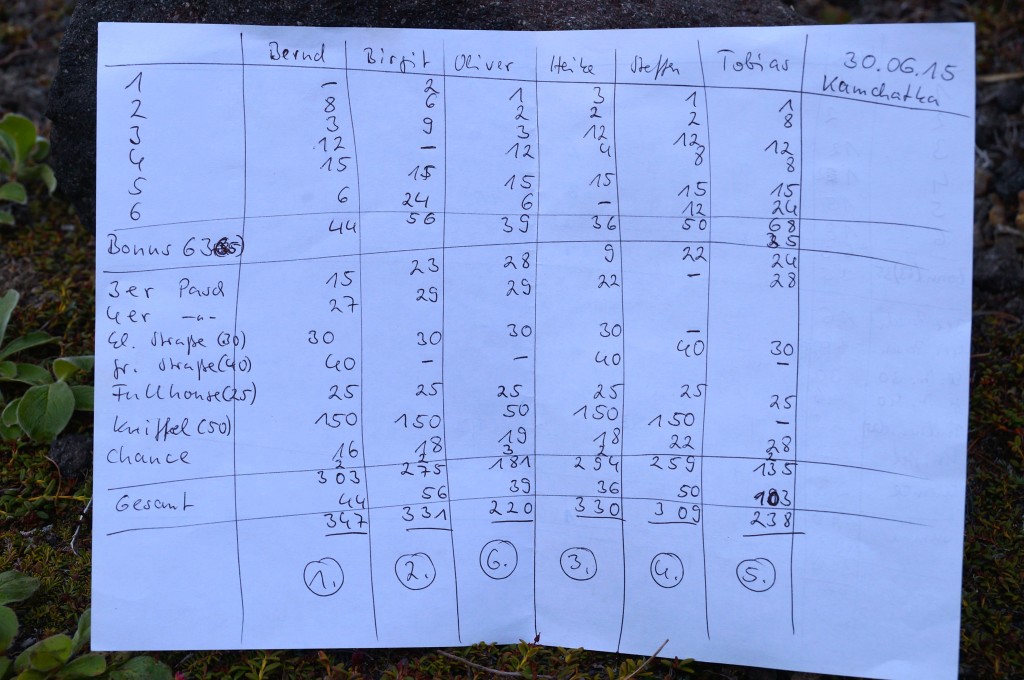 Bernd Birgit Oliver Heike Steffen Tobias 30.06.15
Kamchatka
1 – 2 1 3 1 1
2 8 6 2 2 2 8
3 3 9 3 12 12 12
4 12 – 12 4 8 8
5 15 15 15 15 15 15
6 6 24 6 – 12 24
44 56 39 36 50 68
Bonus 63 35
3er Pasch 15 23 28 9 22 24
4er –"– 27 29 29 22 – 28
kl. Straße (30) 30 30 30 30 – 30
gr. Straße (40) 40 – – 40 40 –
Full house (25) 25 25 25 25 25 25
Kniffel (50) 150 150 50 150 150 –
Chance 16 18 19 18 22 28
303 275 181 294 259 135
Gesamt 44 56 39 36 50 103
347 331 220 330 309 238
1. 2. 6. 3. 4. 5.